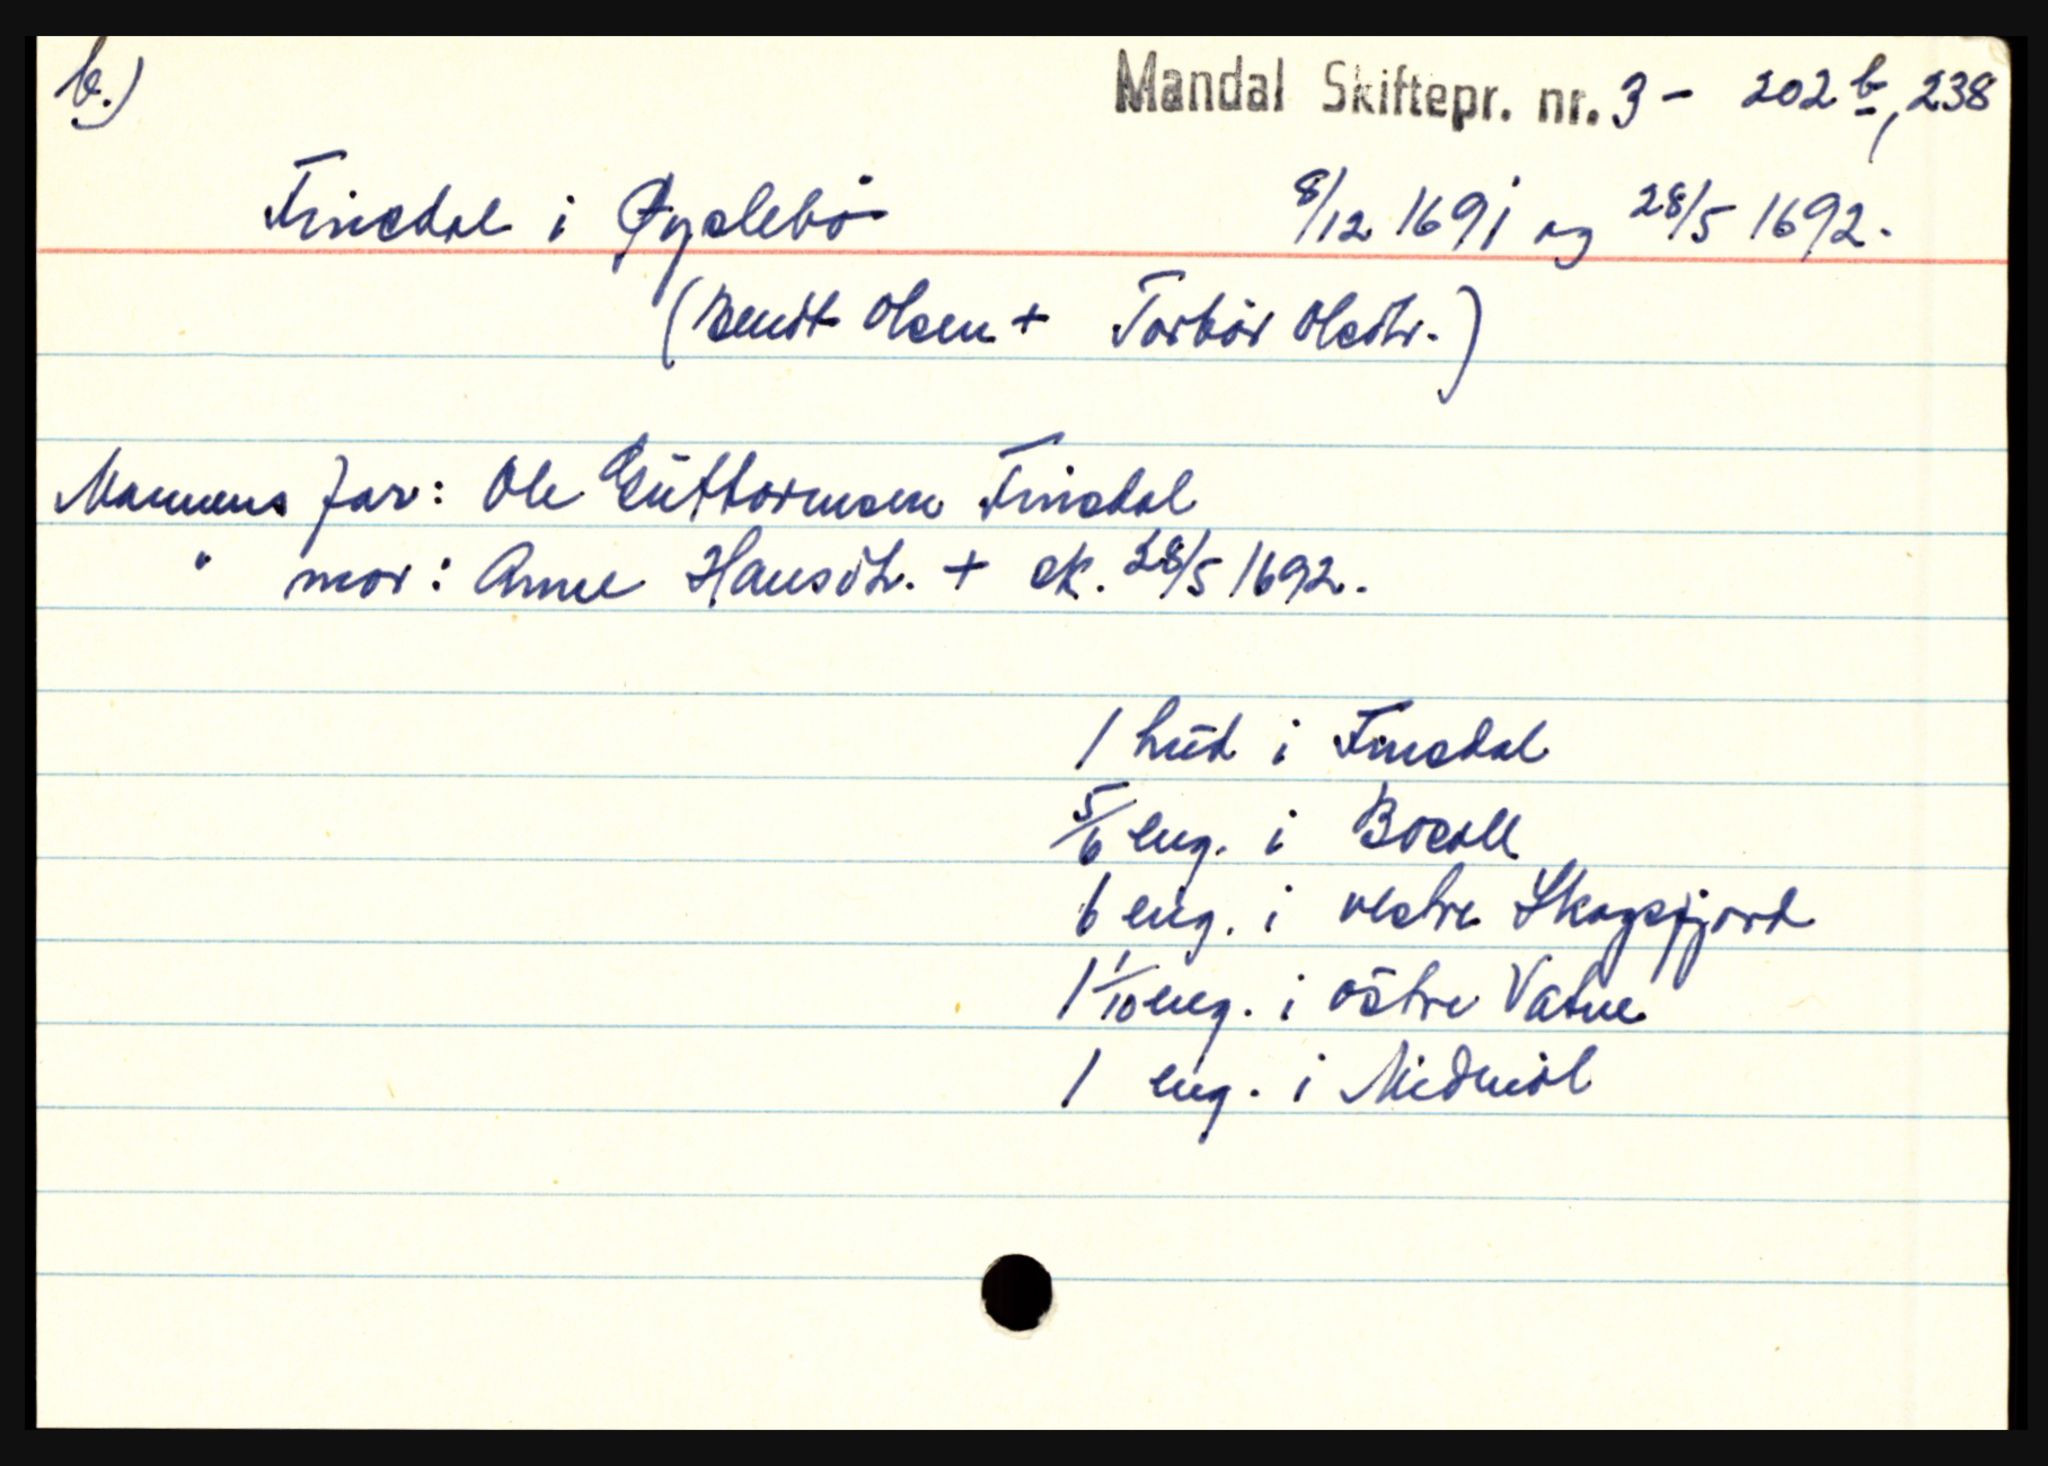 b.)
Mandal Skiftepr. nr. 3 - 202 b, 238
Finsdal i Øyslebö 8/12 1691 og 28/5 1692.
(Bendt Olsen + Torbör Olsdtr.)
Mannens far: Ole Guttormsen Finsdal
" mor: Anne Hansdtr. + sk. 28/5 1692.
1 hud i Finsdal
5/6 eng. i
6 eng. i vestre Skogsfjord
1 1/10 eng. i östre Vatne
1 eng. i Midmöl